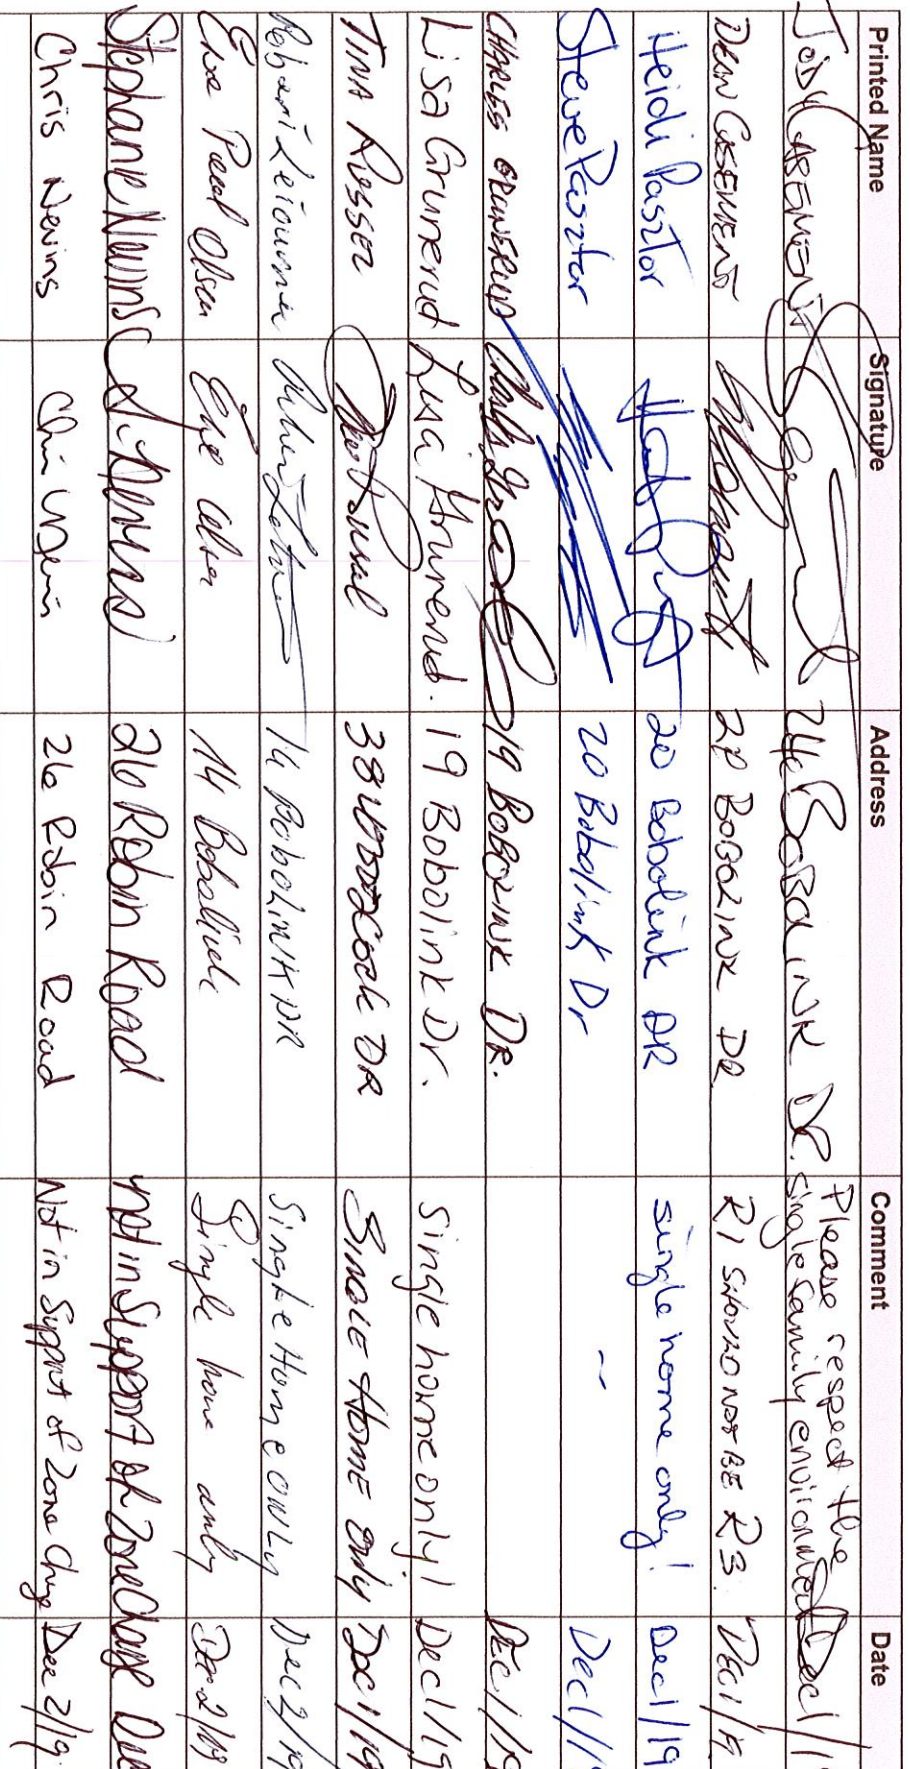 Printed Name Signature Address Comment Date
JODY CASEMENT 24 BOBOLINK DR. Please respect the single family environment Dec 1/1
DEAN CASEMENT BOBOLINK DR R1 SHOULD NOT BE R3. DEC 1/19
Heidi Pasztor 20 Bobolink DR single home only! Dec 1/19
Steve Pasztor 20 Bobolink Dr -- Dec 1/1
CHARLES GRUNERUD 19 BOBOLINK DR. DEC 1/19
Lisa Grunerud Lisa Grunerud. 19 Bobolink Dr. Single home only! Dec 1/19
TINA 38 WOODCOCK DR SINGLE HOME ONLY DEC 1/19
14 BOBOLINK DR Single Home ONLY Dec 2/19
Else Olsen 14 Single home only
Stephanie Nevins 26 Robin Road not in Support of Zone Change Dec
Chris Nevins 26 Robin Road Not in Support of Zone Chnge Dec 2/19